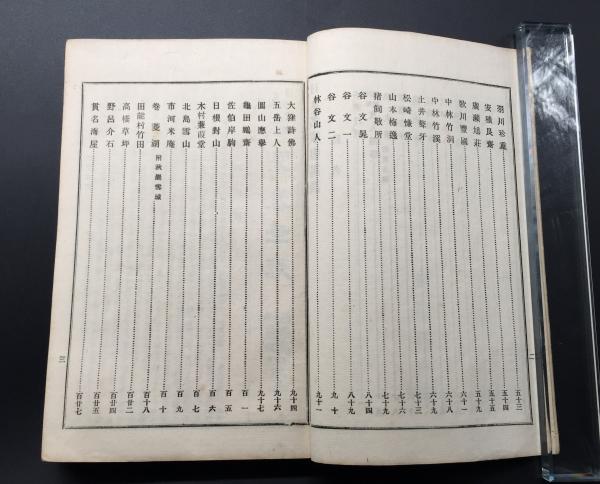 羽川珍重 五十三
安積艮齋 五十四
廣瀬旭莊 五十九
歌川豐國 六十一
中林竹洞 六十八
中林竹溪 六十九
土井聱牙 七十三
松崎慊堂 七十六
山本梅逸 七十九
猪飼敬所
谷文晁 八十四
谷文一 八十九
谷文二 九十
林谷山人 九十一
二
大窪詩佛 九十四
五岳上人 九十六
圓山應擧 九十七
龜田鵬齋 百一
佐伯岸駒 百五
日根對山 百六
木村蒹葭堂 百七
北島雪山 百九
市河米庵 百十
卷菱湖 附萩原秋巖
田能村竹田 百十八
高橋草坪 百廿二
野呂介石 百廿四
貫名海屋 百廿五
百廿七
三